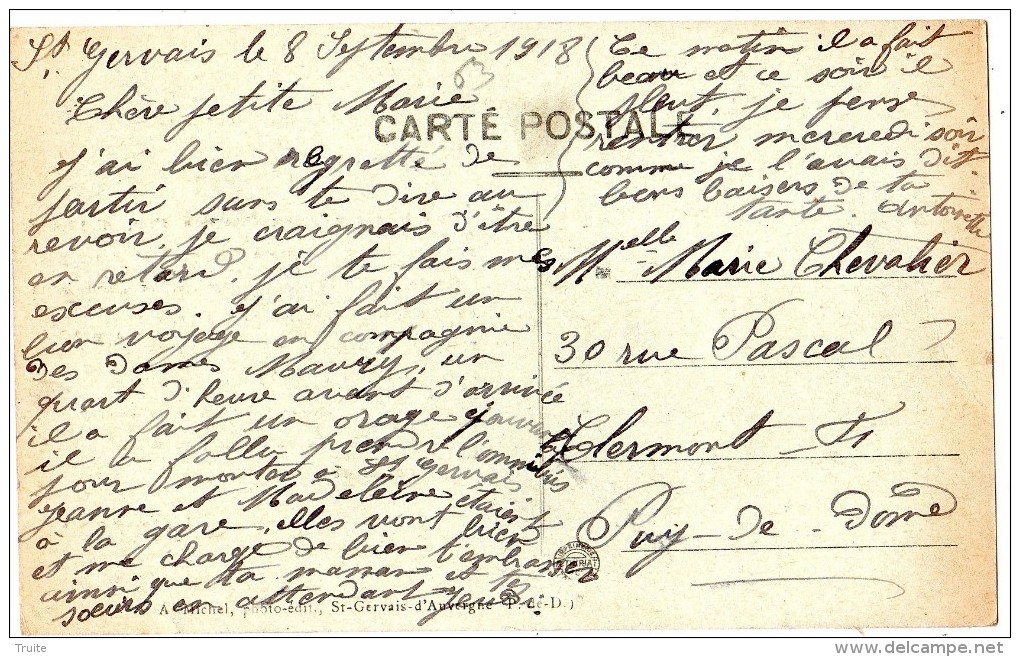 St Gervais le 8 Septembre 1918
63
Chère petite Marie,
CARTE POSTALE
j'ai bien regretté de
partir sans te dire au
revoir, je craignais d'être
en retard, je te fais mes
excuses. j'ai fait un
bon voyage en compagnie
des dames Maury, un
quart d'heure avant d'arrivée
il a fait un orage
il a fallu prendre l'omnibus
pour monter à St Gervais
Jeanne et Madeleine étaient
à la gare, elles vont bien
et me charge de bien t'embrasser
ainsi que ta maman et tes
soeurs en attendant
Ce matin il a fait
beau et ce soir il
pleut, je pense
rentrer mercredi soir
comme je l'avais dit
bons baisers de ta
tante. Antoinette
Melle Marie Chevalier
30 rue Pascal
Clermont Ft
Puy-de-Dôme
A. Michel, photo-édit., St-Gervais-d'Auvergne (P.-de-D.)
Truite
www.delcampe.net